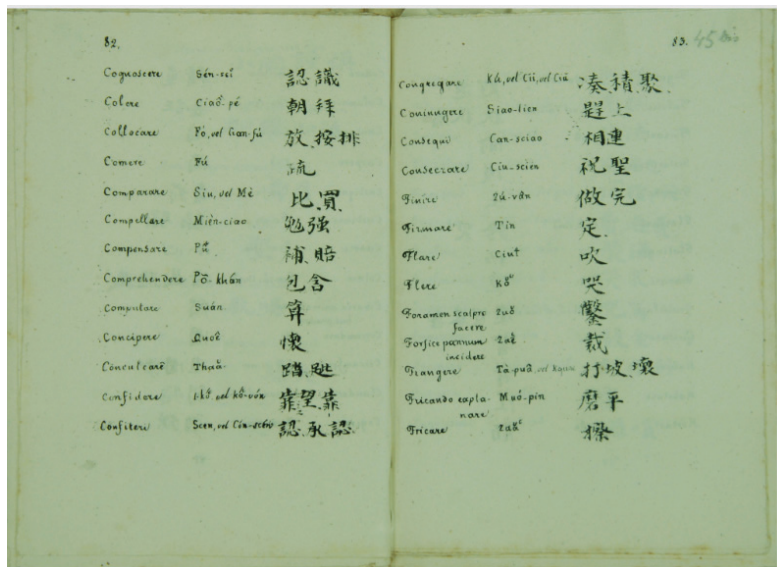 82.
Cognoscere Sén-seĭ 認識
Colere Ciaŏ-pé 朝拜
Collocare Fó, vel Gan-fú 放、按排
Comere Fú 疏
Comparare Siu, vel Mè 比、買
Compellare Mièn-ciao 勉强
Compensare Pŭ 補、賠
Comprehendere Pō-khán 包含
Computare Suán 算
Concipere Quoĕ 懷
Conculcare Thuă 踏、跐
Confidere vel 靠、望靠
Confiteri Scen, vel 認、承認
83. 45
Congregare vel Cii, vel Ciú 凑、積、聚
Coniungere Siao-lien 上
Consequi Can-sciao 相連
Consecrare Ciu-scién 祝聖
Finire Zú-vân 做完
Firmare Tín 定
Flare 吹
Flere 哭
Foramen scalpro Zuŏ 鑿
facere
Forfice pannum 裁
incidere
Frangere Tà-puŏ, vel 打坡、壞
Fricando expla- Muó-pin 磨平
nare
Fricare 擦